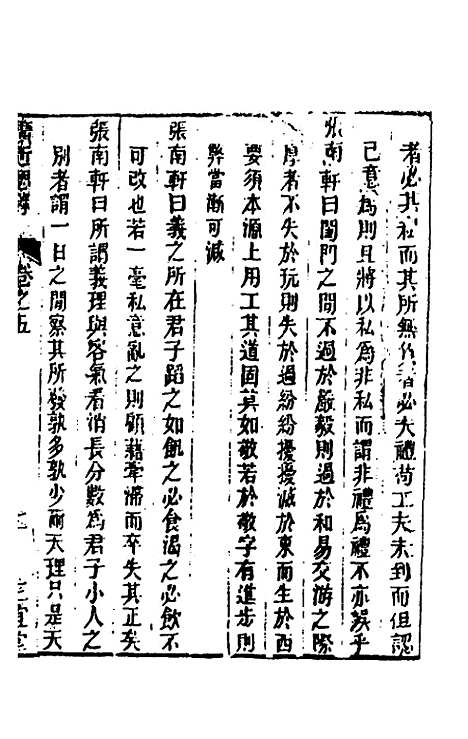 者必其私而其所無作者必大禮苟工夫未到而但認
己意為則且將以私為非私而謂非禮為禮不亦誤乎
張南軒曰閨門之間不過於嚴毅則過於和易交游之際
厚者不失於玩則失於過紛紛擾擾滅於東而生於西
要須本源上用工其道固莫如敬若於敬字有進步則
弊當漸可減
張南軒曰義之所在君子蹈之如飢之必食渴之必飲不
可改也若一毫私意亂之則顧藉牽滯而卒失其正矣
張南軒曰所謂義理與客氣看消長分數為君子小人之
別者謂一日之間察其所發孰多孰少爾天理只是天
卷之五